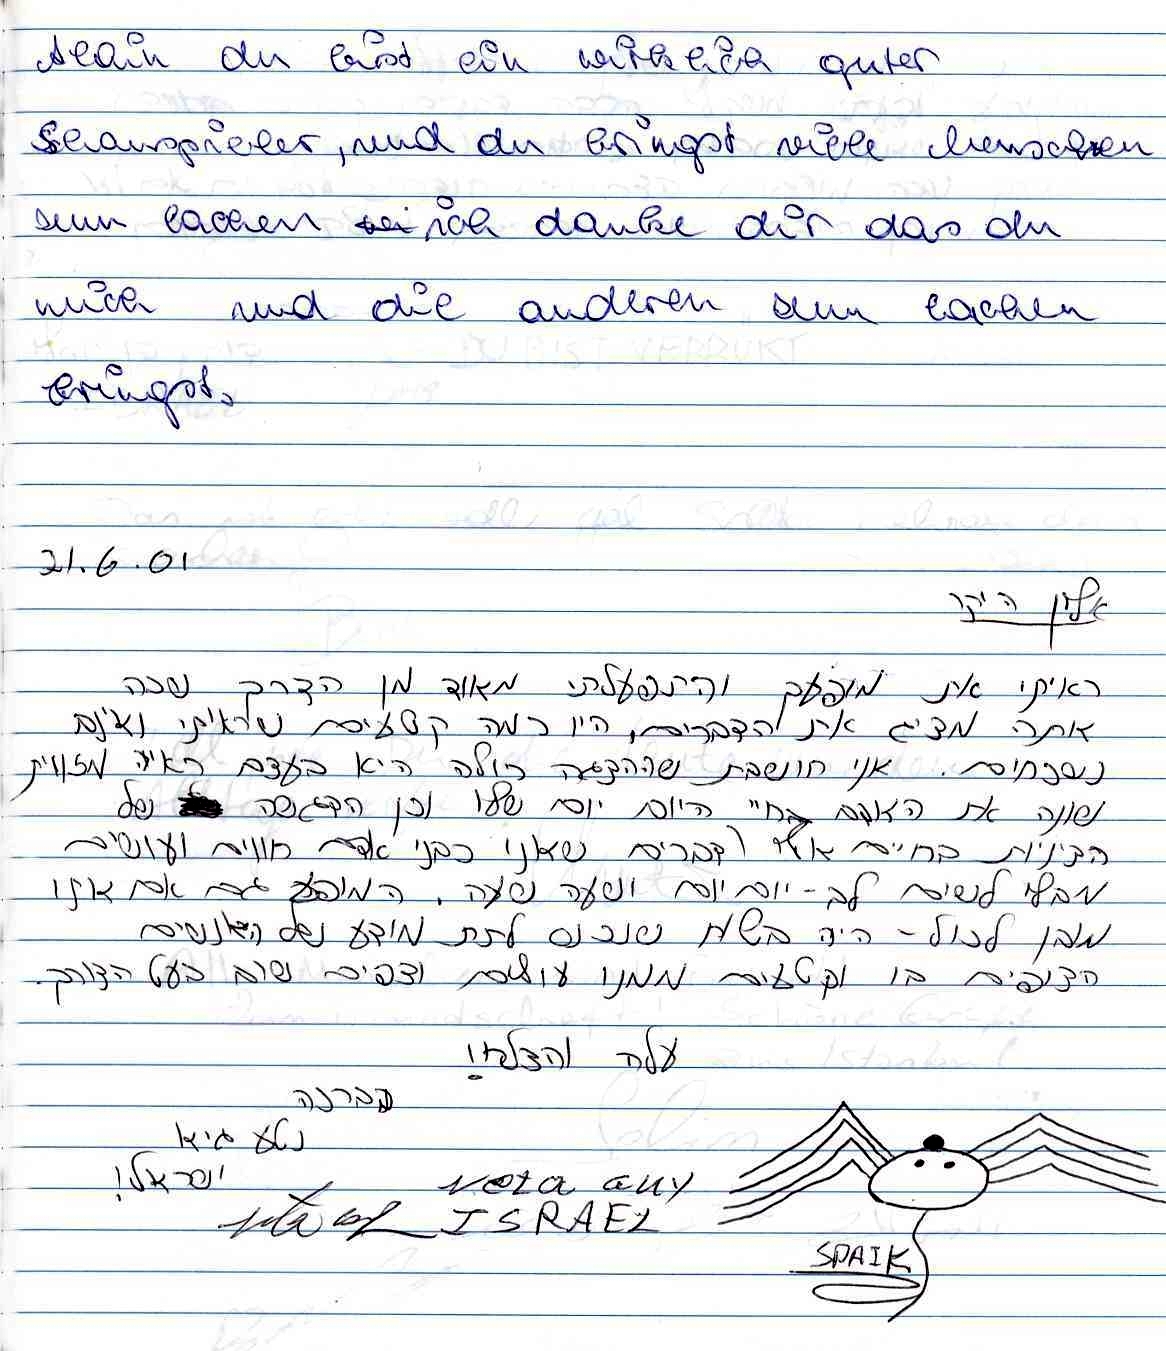 Alain du bist ein wirklich guter
Schauspieler, und du bringst viele Menschen
zum lachen ich danke dir das du
mich und die anderen zum lachen
bringst.
21.6.01
אליין היקר
ראיתי את מופעך והתפעלתי מאוד מן הדרך שבה
אתה מציג את הדברים, היו כמה קטעים שראיתי ואינם
נשכחים. אני חושבת שההצגה כולה היא בעצם ראיה מזווית
שונה את האדם בחיי היום יום שלו וכן הדגשה של
הבינית בחיים אשר דברים שאנו כבני אדם חווים ועושים
מבלי לשים לב - יום יום ושעה שעה. המופע גם אם אינו
מובן לכול - היה בשח שנכנס לתת מודע של האנשים
הצופים בו וקטעים ממנו עולים וצפים שוב בעת הצורך.
עלה והצלח!
בברכה
נטע גיא
ישראל!
neta guy
ISRAEL
SPAIK